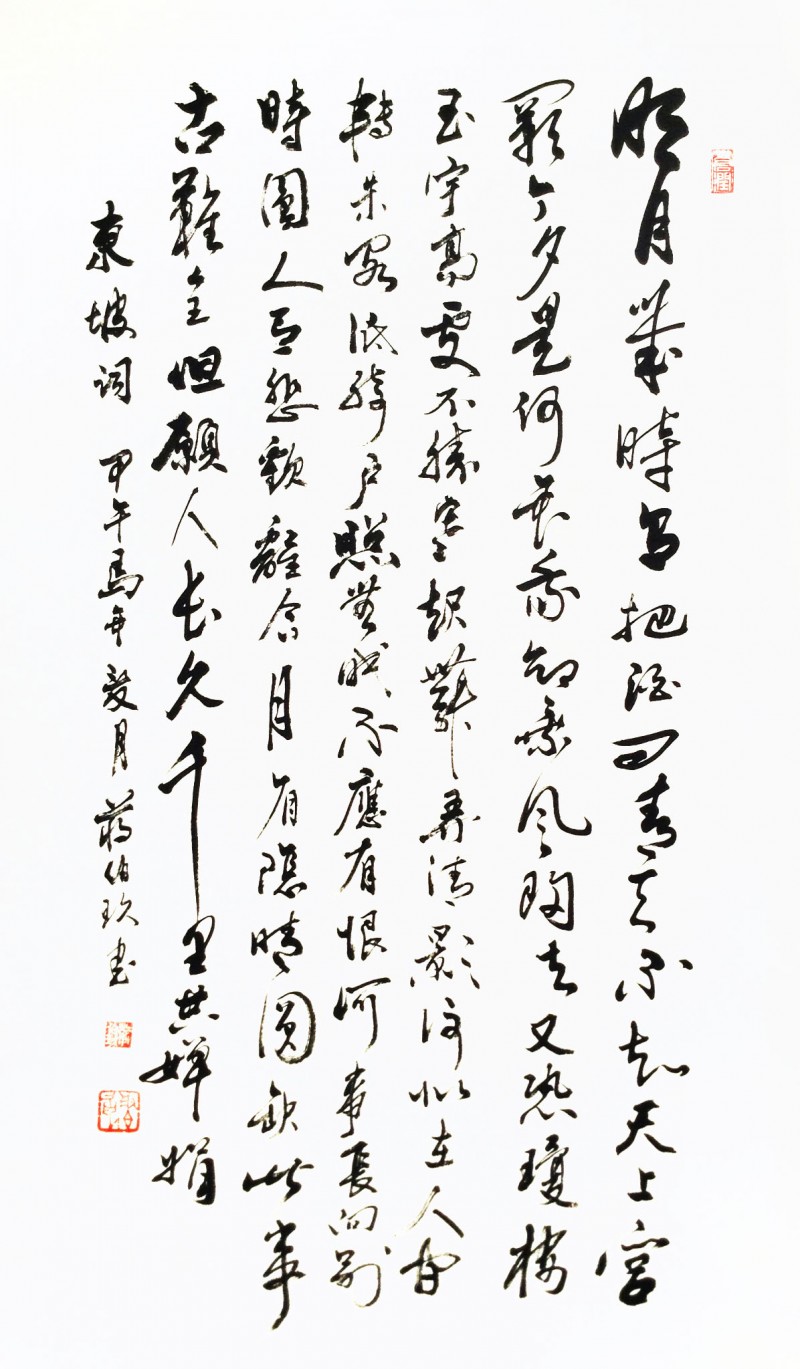 明月幾時有把酒问青天不知天上宫
闕今夕是何年我欲乘風歸去又恐瓊樓
玉宇高處不勝寒起舞弄清影何似在人间
轉朱閣低綺户照無眠不應有恨何事長向别
時圓人有悲歡離合月有陰晴圓缺此事
古難全但願人長久千里共嬋娟
東坡詞 甲午馬年 月 蔣伯玖書